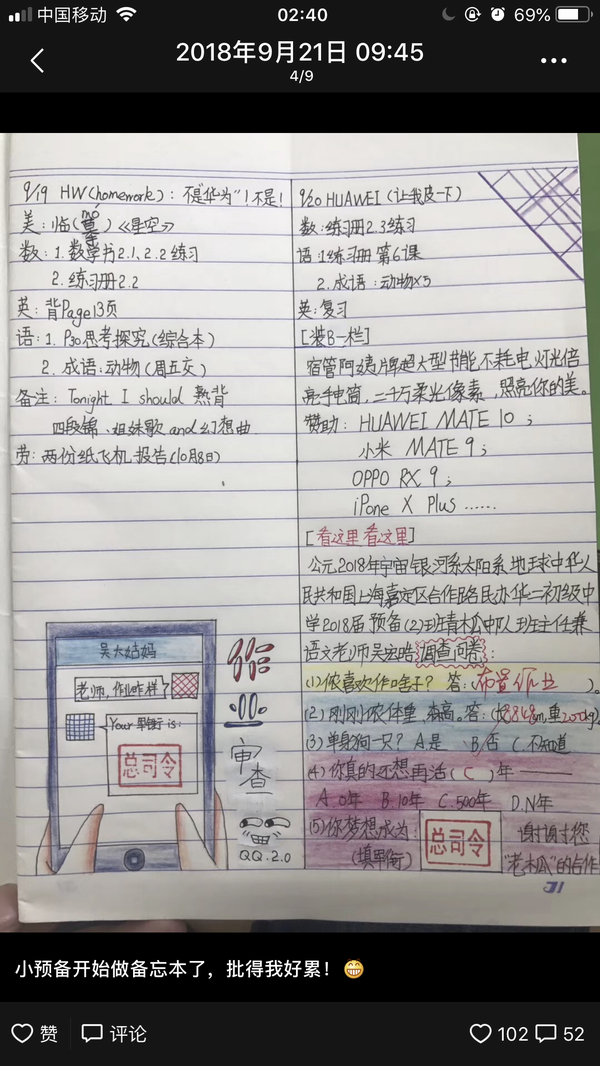 中国移动
02:40
69%
2018年9月21日 09:45
4/9
9/19 HW(homework)：不是"华为"！不是！
美：临(莫)《星空》
数：1.数学书2.1、2.2练习
2.练习册2.2
英：背Page13页
语：1.P30思考探究(综合本)
2.成语：动物(周五交)
备注：Tonight I should 熟背
四段锦、姐妹歌and幻想曲
劳：两份纸飞机报告(10月8日)
吴大姑妈
老师，作业咋样？
Your 军衔 is：
总司令
你
审查
QQ.2.0
9/20 HUAWEI（让我皮一下）
数：练习册2.3练习
语：1练习册 第6课
2.成语：动物×5
英：复习
[装B一栏]
宿管阿姨牌超大型节能不耗电,灯光倍
亮手电筒，二十万柔光像素，照亮你的美。
赞助：HUAWEI MATE 10；
小米 MATE 9；
OPPO RX 9；
iPone X Plus ……
[看这里看这里]
公元2018年宇宙银河系太阳系地球中华人
民共和国上海嘉定区合作路名民办华二初级中
学2018届预备(2)班青木瓜中队班主任兼
语文老师吴宏晗调查问卷：
(1)侬喜欢作啥子？答：布置作业)。
(2)刚刚侬体重、、高。答：
(3)单身狗一只？A.是 B.否 C.不知道
(4)你真的还想再活(C)年——
A.0年 B.10年 C.500年 D.N年
(5)你梦想成为：总司令 谢谢过您
(填军衔) "老木瓜"的合作
小预备开始做备忘本了，批得我好累！
赞
评论
102
52